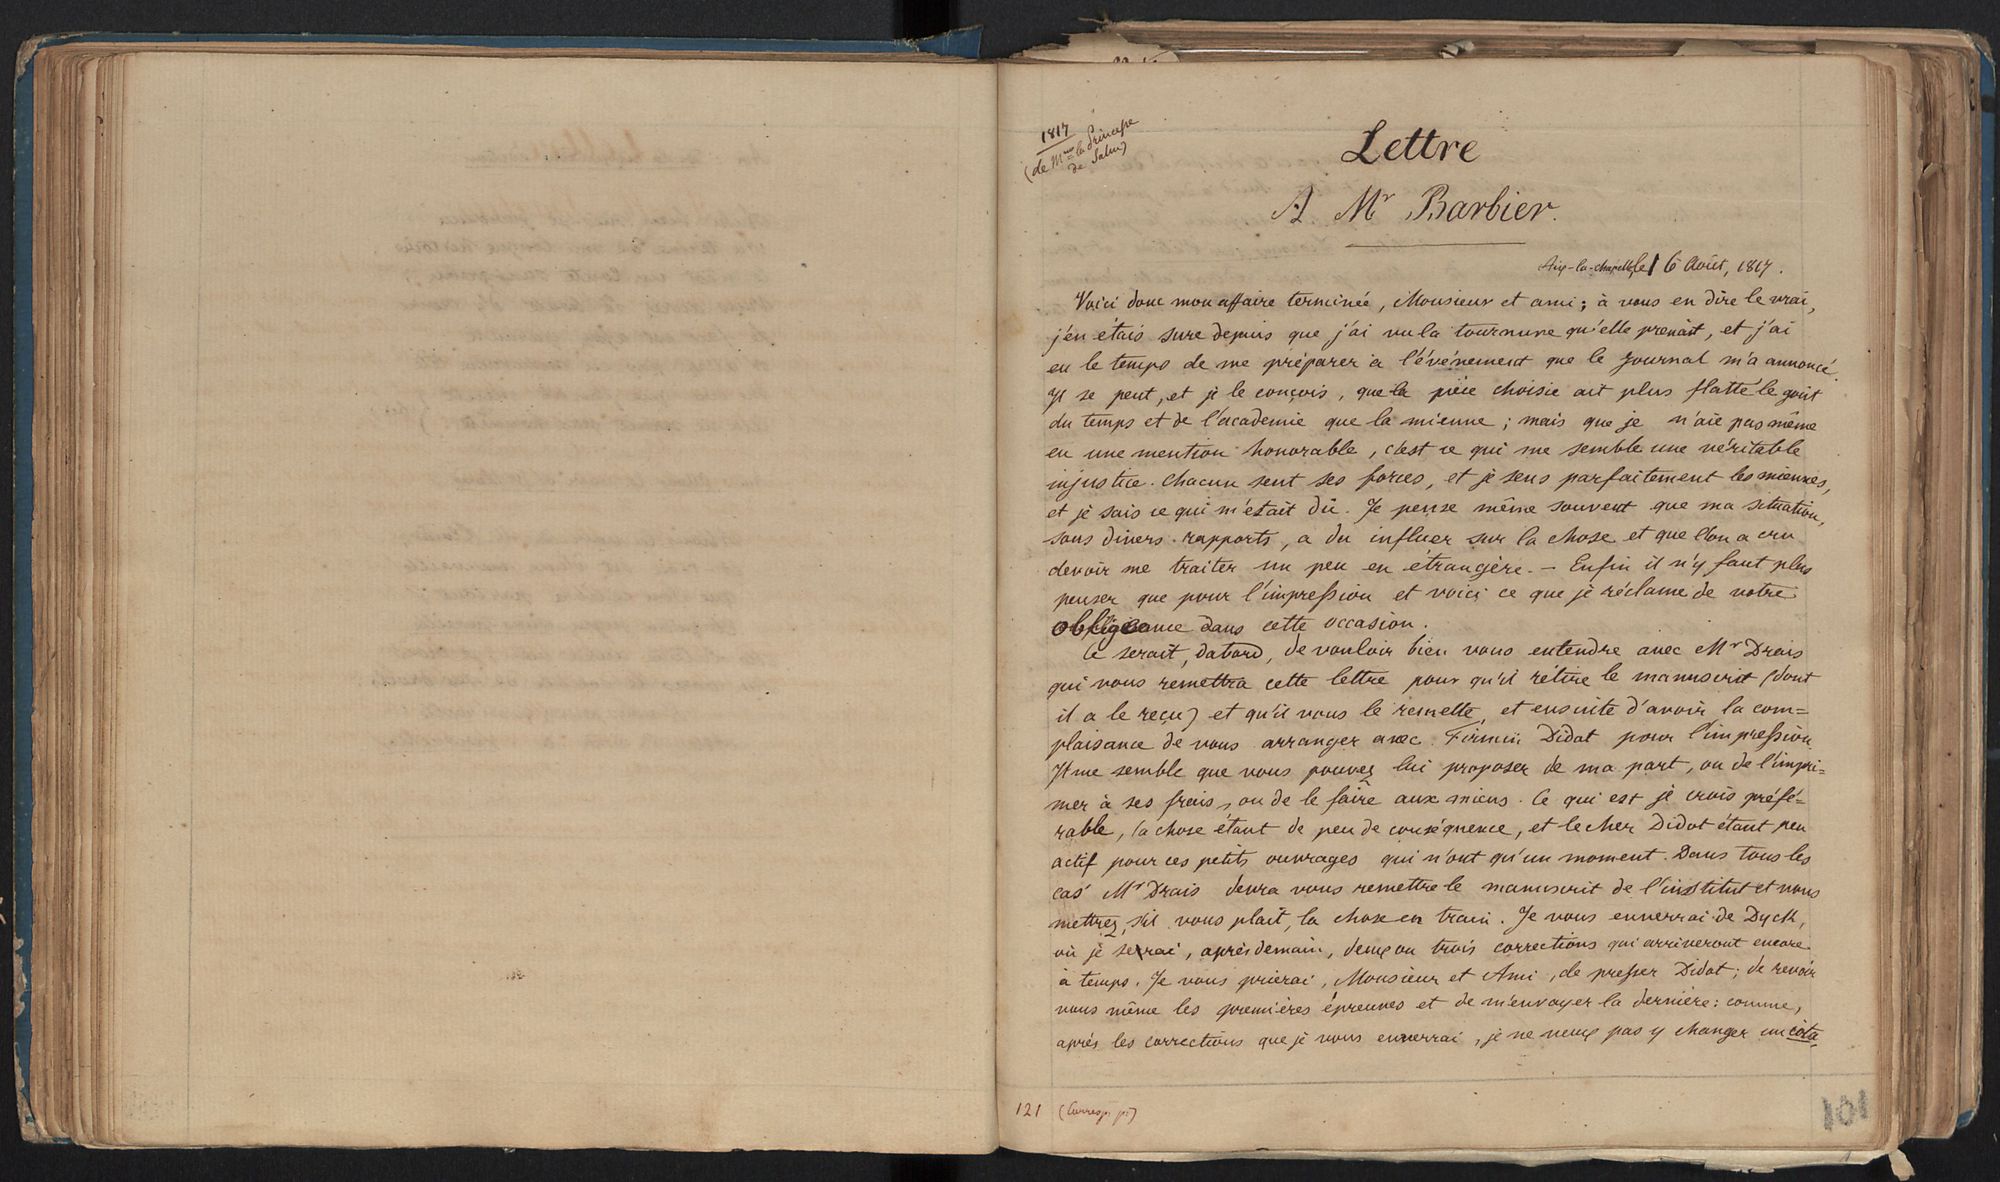 1817
(de Mme la Princesse
de Salm)
Lettre
A Mr Barbier.
Aix-la-chapelle, le 16 Août, 1817.
Voici donc mon affaire terminée, Monsieur et ami ; à vous en dire le vrai,
j'en étais sure depuis que j'ai vu la tournure qu'elle prenait, et j'ai
eu le temps de me préparer à l'événement que le journal m'a annoncé.
Il se peut, et je le conçois, que la pièce choisie ait plus flatté le goût
du temps et de l'académie que la mienne ; mais que je n'aie pas même
eu une mention honorable, c'est ce qui me semble une véritable
injustice. Chacun sent ses forces, et je sens parfaitement les miennes,
et je sais ce qui m'était dû. Je pense même souvent que ma situation,
sous divers rapports, a du influer sur la chose et que l'on a cru
devoir me traiter un peu en étrangère. – Enfin il n'y faut plus
penser que pour l'impression et voici ce que je réclame de votre
obligeance dans cette occasion.
Ce serait, dabord, de vouloir bien vous entendre avec Mr Drais
qui vous remettra cette lettre pour qu'il rétire le manuscrit (dont
il a le reçu) et qu'il vous le remette, et ensuite d'avoir la com=
plaisance de vous arranger avec Firmin Didot pour l'impression.
Il me semble que vous pouvez lui proposer de ma part, ou de l'impri=
mer à ses frais, ou de le faire aux miens. Ce qui est je crois préfé=
rable, la chose étant de peu de conséquence, et le cher Didot étant peu
actif pour ces petits ouvrages qui n'ont qu'un moment. Dans tous les
cas Mr Drais devra vous remettre le manuscrit de l'institut et vous
mettrez, s'il vous plait, la chose en train. Je vous enverrai de Dyck,
où je serai, après demain, deux ou trois corrections qui arriveront encore
à temps. Je vous prierai, Monsieur et Ami, de presser Didot ; de revoir
vous même les premières épreuves et de m'envoyer la dernière : comme,
après les corrections que je vous enverrai, je ne veux pas y changer un iota,
121 (Corresp. pr)
101